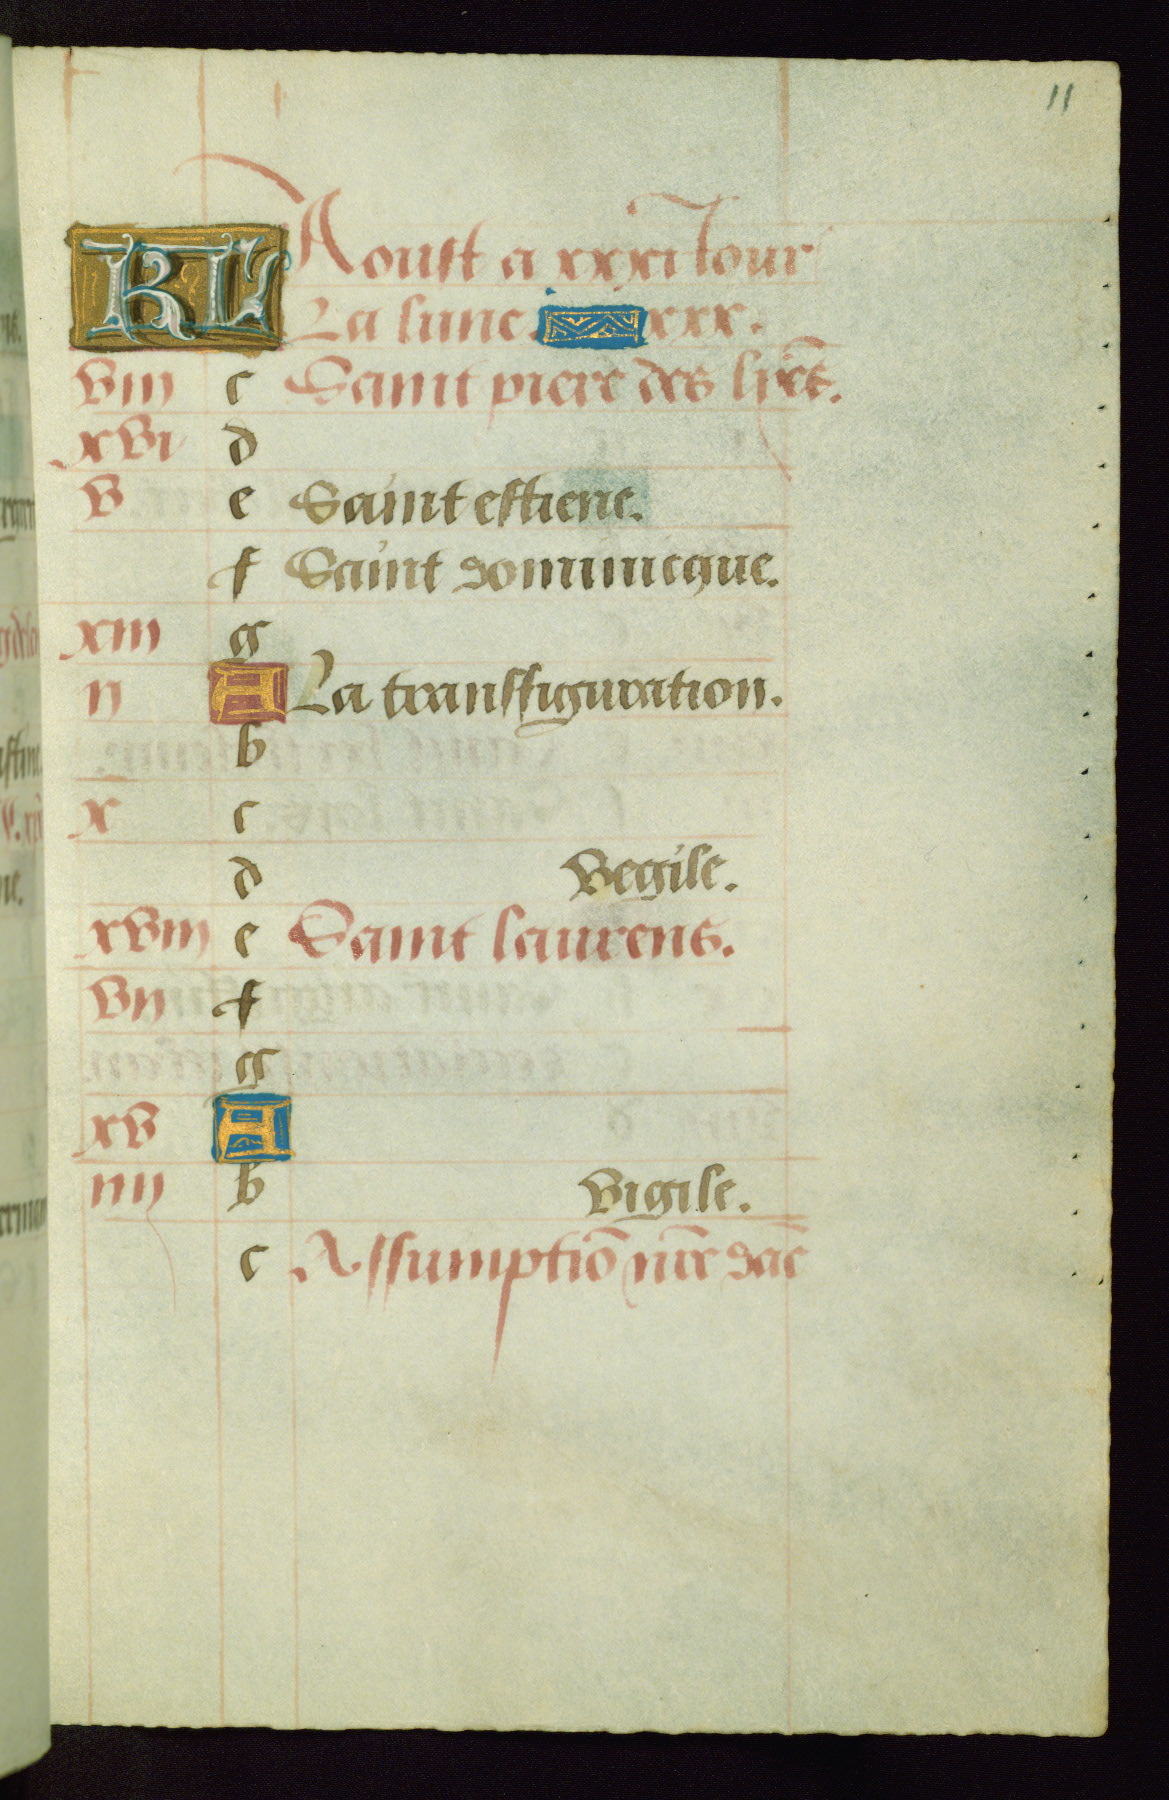 11
KL Aoust a xxxi Iour
La lune xxx.
viii c Saint piere des liẽs.
xvi d
v e Saint estiene.
f Saint dominicque.
xiii g
ii A La transfiguration.
b
x c
d Vegile.
xviii e Saint laurens.
vii f
g
xv A
iiii b Vigile.
c Assumptiõ nr̃e dãe